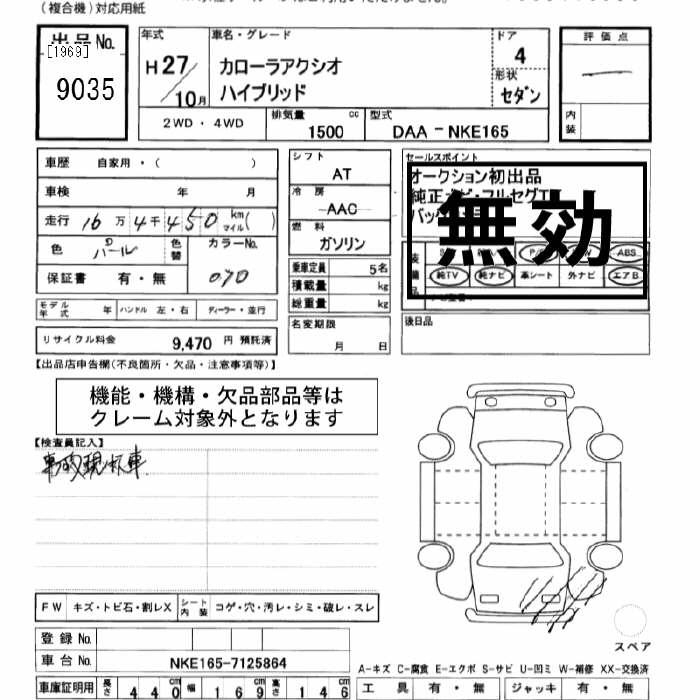 (複合機)対応用紙
出品No.
[1969]
9035
年式
H27/10月
車名・グレード
カローラアクシオ
ハイブリッド
ドア
4
形状
セダン
評価点
内装
2WD・4WD
排気量
1500 cc
型式
DAA-NKE165
車歴 自家用・( )
車検 年 月
走行 16万4千450 km マイル( )
色 パール
色替
カラーNo.
070
保証書 有・無
モデル年式 年 ハンドル 左・右 ディーラー・並行
リサイクル料金 9,470円 預託済
シフト
AT
冷房
AAC
燃料
ガソリン
乗車定員 5名
積載量 kg
総重量 kg
名変期限
月 日
セールスポイント
オークション初出品
無効
ABS
純TV 純ナビ 革シート 外ナビ エアB
後日品
【出品店申告欄(不良箇所・欠品・注意事項等)】
機能・機構・欠品部品等は
クレーム対象外となります
【検査員記入】
事故現状車
FW キズ・トビ石・割レX
シート内装 コゲ・穴・汚レ・シミ・破レ・スレ
登録No.
車台No. NKE165-7125864
車庫証明用 長さ 440cm 幅 169cm 高さ 146cm
スペア
A-キズ C-腐食 E-エクボ S-サビ U-凹ミ W-補修 XX-交換済
工具 有・無 ジャッキ 有・無